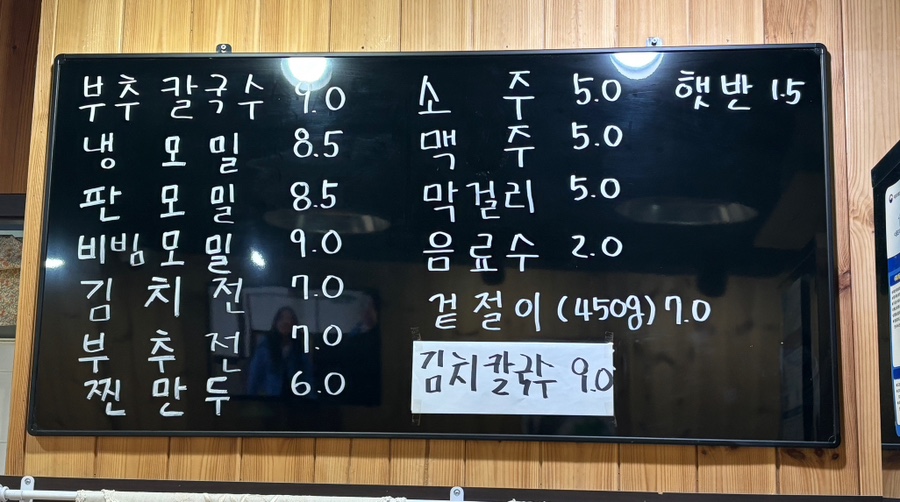 부추 칼국수 9.0
냉 모밀 8.5
판 모밀 8.5
비빔모밀 9.0
김치전 7.0
부추전 7.0
찐만두 6.0
소주 5.0
맥주 5.0
막걸리 5.0
음료수 2.0
겉절이 (450g) 7.0
김치칼국수 9.0
햇반 1.5